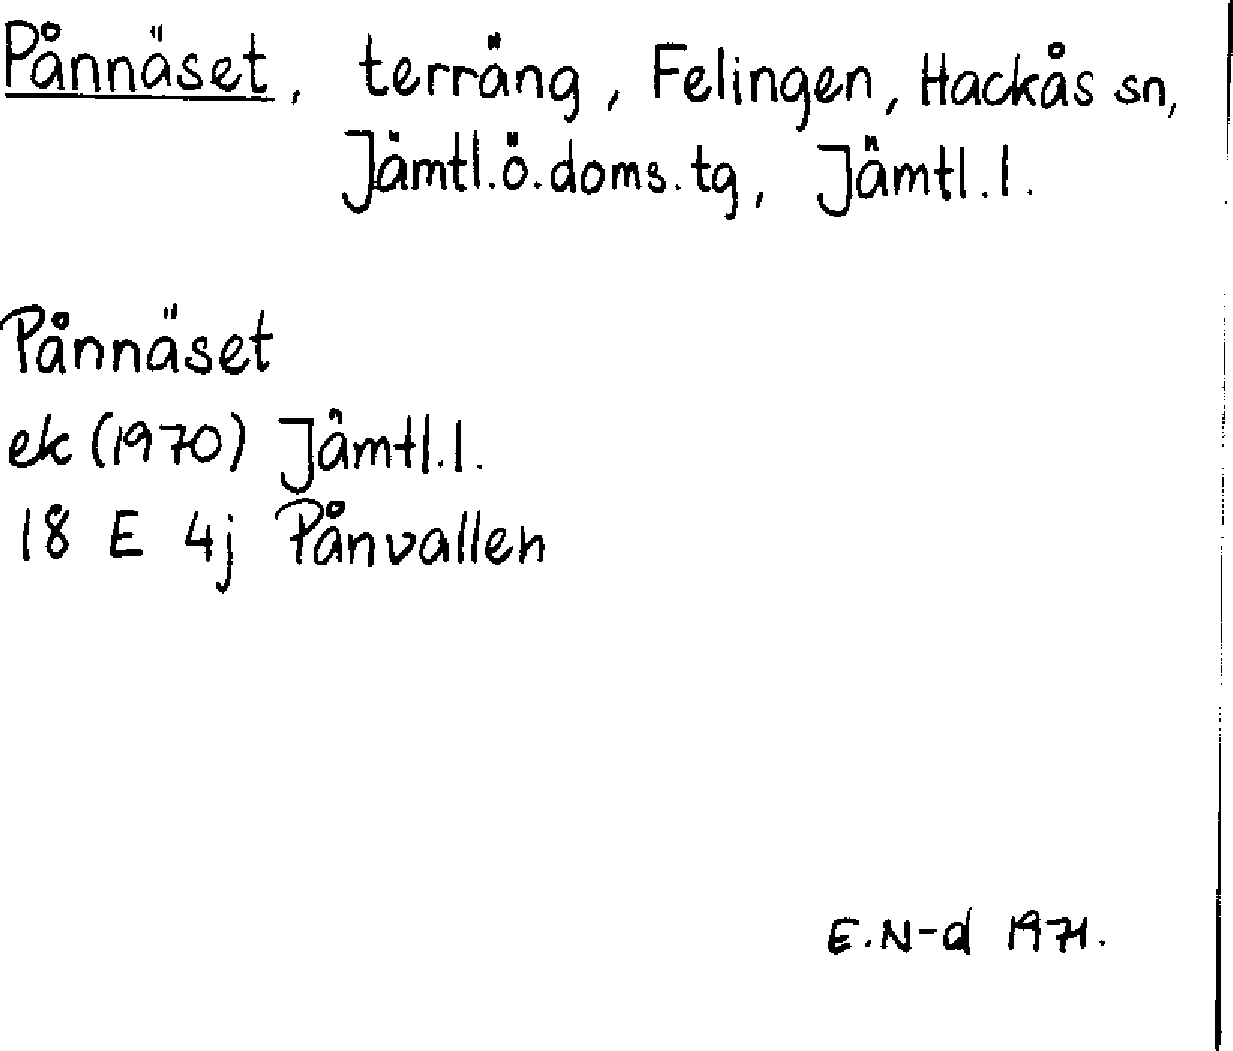 Pånnäset, terräng, Felingen, Hackås sn,
Jämtl.ö.doms.tg, Jämtl.l.
Pånnäset
ek (1970) Jämtl.l.
18 E 4j Pånvallen
E.N-d 1971.